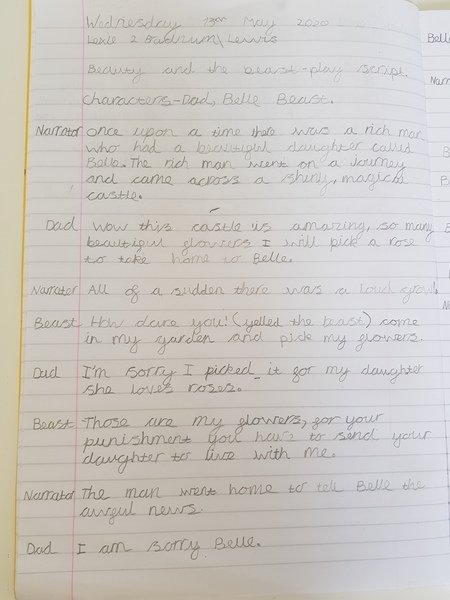 Wednesday 13th May 2020
Lexie 2 Bradrum/Lewis
Beauty and the beast-play script.
Characters-Dad, Belle Beast.
Narrator once upon a time there was a rich man
who had a beautiful daughter called
Belle. The rich man went on a Journey
and came across a shiny, magical
castle.
Dad Wow this castle is amazing, so many
beautiful flowers I will pick a rose
to take home to Belle.
Narrator All of a sudden there was a loud growl.
Beast How dare you! (yelled the beast) come
in my garden and pick my flowers.
Dad I'm sorry I picked it for my daughter
she loves roses.
Beast Those are my flowers, for your
punishment you have to send your
daughter to live with me.
Narrator The man went home to tell Belle the
awful news.
Dad I am sorry Belle.